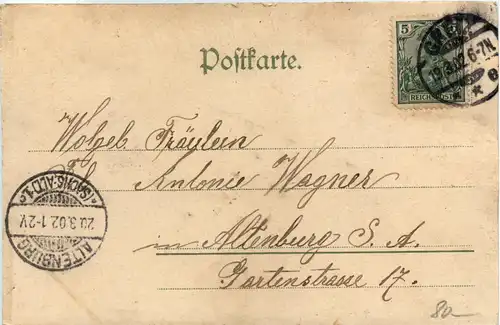 Postkarte.
5
REICHSPOST
19.3.02. 6-7N.
Wohlgeb. Fräulein
Antonie Wagner
in Altenburg S. A.
Gartenstrasse 17.
(SACHS.-ALTB.)
20.3.02. 1-2V.
ALTENBURG
80.-